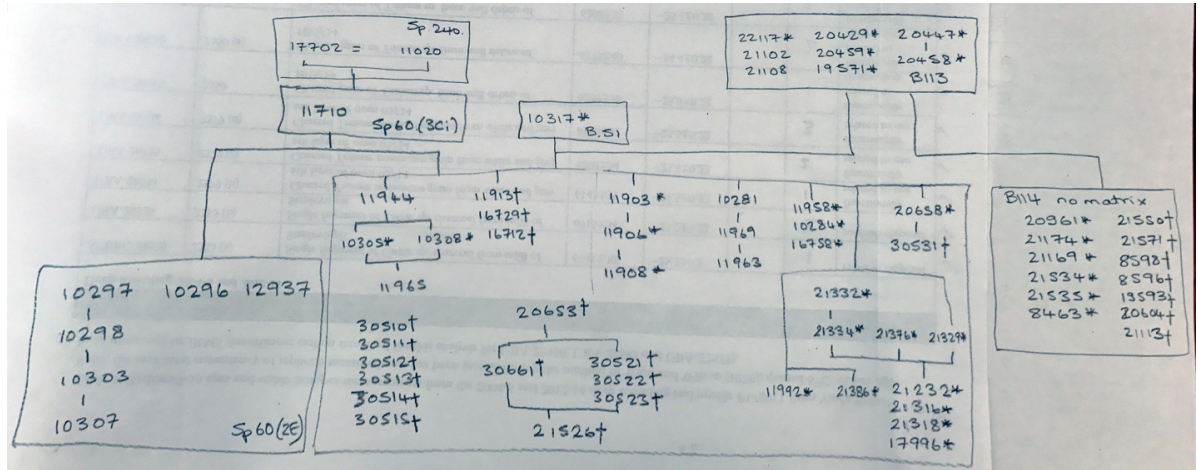 Sp 240.
17702 = 11020
22117* 20429* 20447*
21102 20459* 20458*
21108 19571* B113
11710
Sp60.(3Ci)
10317*
B.51
11944
10305* 10308*
11965
11913†
16729†
16712†
11903*
11906*
11908*
10281
11969
11963
11958*
10284*
16758*
20658*
30531†
B114 no matrix
20961* 21550†
21174* 21571†
21169* 8598†
21534* 8596†
21535* 13593†
8463* 20604†
21113†
10297 10296 12937
10298
10303
10307
Sp60(2E)
30510†
30511†
30512†
30513†
30514†
30515†
20653†
30661† 30521†
30522†
30523†
21526†
21332*
21334* 21376* 21329*
11992* 21386* 21232*
21316*
21318*
17996*